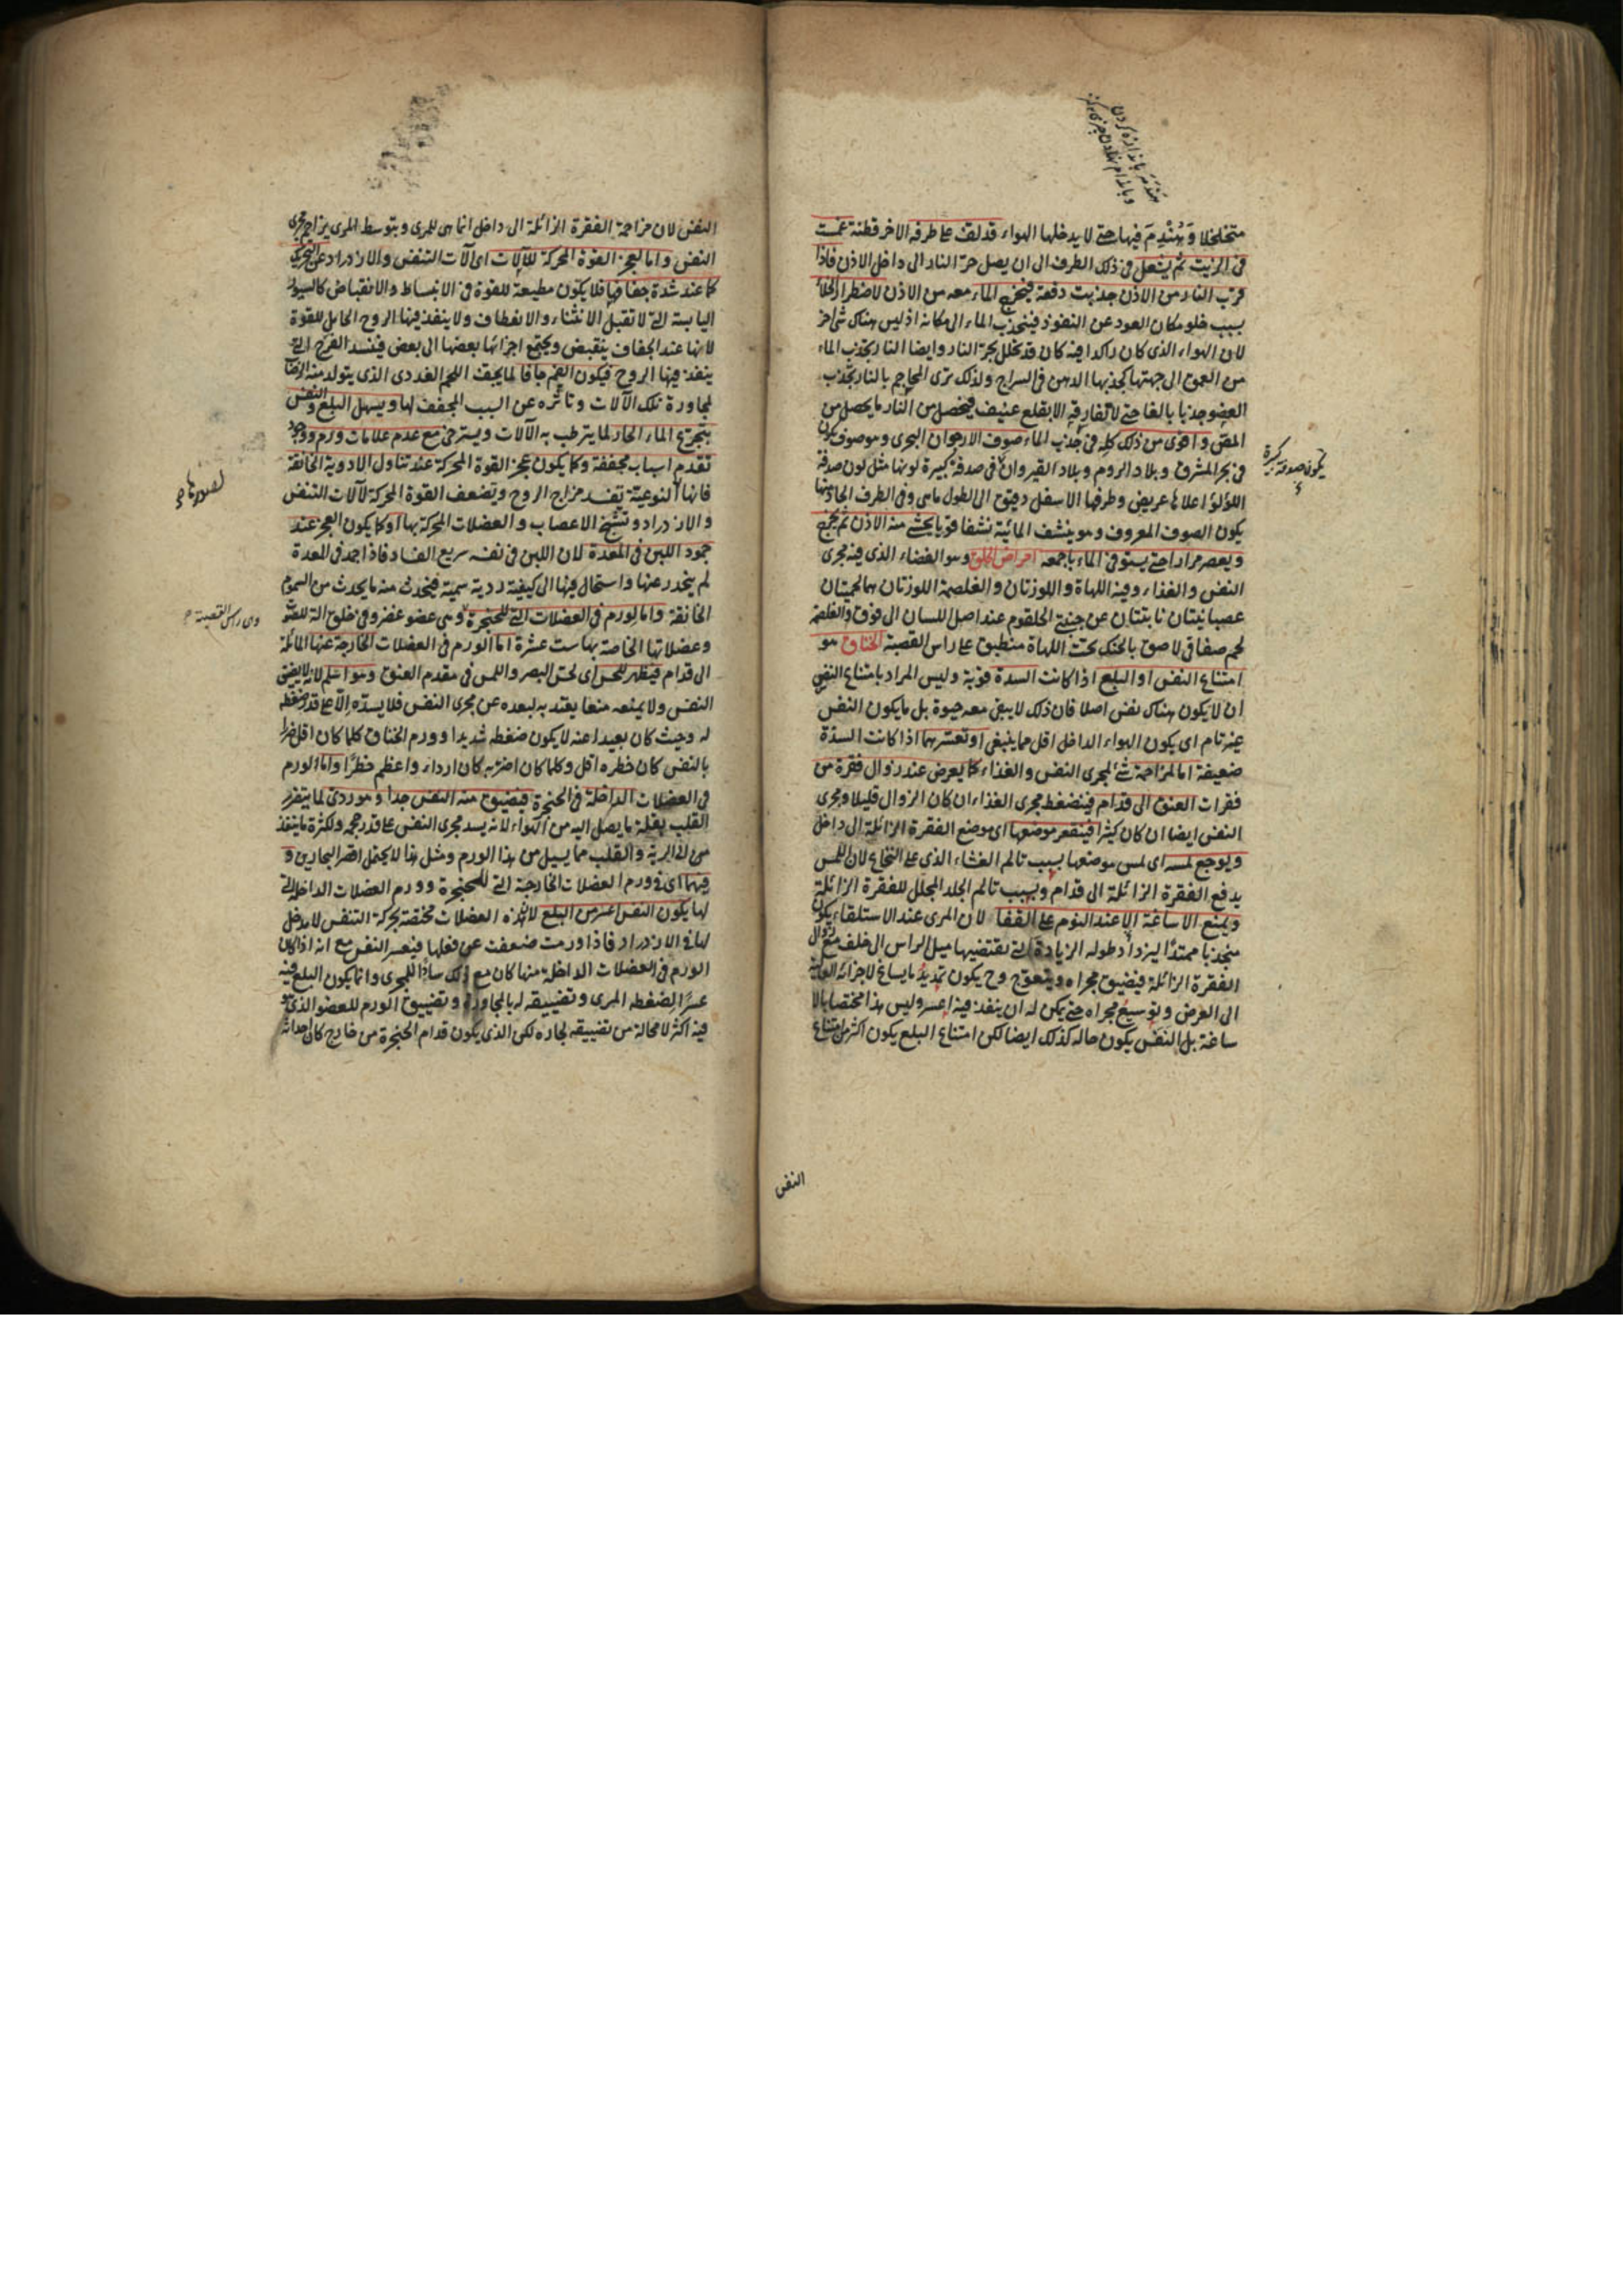 متخلخلا ويهندم فيها حتى لا يدخلها الهواء قد لف على طرفه الاخر قطنة غمست
فى الزيت ثم يشعل فى ذلك الطرف الى ان يصل حر النار الى داخل الاذن فاذا
قرب النار من الاذن جذبت دفعة فيخرج الماء معه من الاذن لاضطرار الخلاء
بسبب خلو مكان العود عن النفوذ فينجذب الماء الى مكانه اذ ليس هناك شئ اخر
لان الهواء الذى كان راكدا فيه كان قد تخلل بحر النار وايضا النار يجذب الماء
من العمق الى جهتها كجذبها الدهن فى السراج ولذلك ترى المحاجم بالنار تجذب
العضو جذبا بالغا حتى لا تفارقه الا بقلع عنيف فيحصل من النار ما يحصل من
المص واقوى من ذلك كله فى جذب الماء صوف الارجوان البحرى وهو صوف يكون
فى بحر المشرق وبلاد الروم وبلاد القيروان فى صدفة كبيرة لونها مثل لون صدفة
اللؤلؤ اعلاها عريض وطرفها الاسفل دقيق الى الطول ماهى وفى الطرف الحاد منها
يكون الصوف المعروف وهو ينشف المائية نشفا قويا يحشى منه الاذن ثم يخرج
ويعصر مرارا حتى يستوفى الماء باجمعه امراض الحلق وهو الفضاء الذى فيه مجرى
النفس والغذاء وفيه اللهاة واللوزتان والغلصمة اللوزتان هما لحميتان
عصبانيتان نابتتان عن جنبتى الحلقوم عند اصل اللسان الى فوق والغلصمة
لحم صفاقى لاصق بالحنك تحت اللهاة منطبق على راس القصبة الخناق هو
امتناع النفس او البلع اذا كانت السدة قوية وليس المراد بامتناع النفس
ان لا يكون هناك نفس اصلا فان ذلك لا يبقى معه حيوة بل ما يكون النفس
غير تام اى يكون الهواء الداخل اقل مما ينبغى او تعسرهما اذا كانت السدة
ضعيفة اما لمزاحمة شئ لمجرى النفس والغذاء كما يعرض عند زوال فقرة من
فقرات العنق الى قدام فينضغط مجرى الغذاء ان كان الزوال قليلا ومجرى
النفس ايضا ان كان كثيرا فينقعر موضعها اى موضع الفقرة الزائلة الى داخل
ويوجع لمسه اى لمس موضعها بسبب تالم الغشاء الذى على النخاع لان اللمس
يدفع الفقرة الزائلة الى قدام وبسبب تالم الجلد المجلل للفقرة الزائلة
ويمنع الاساغة الا عند النوم على القفا لان المرى عند الاستلقاء يكون
منجذبا ممتدا ليزداد طوله الزيادة التى تقتضيها ميل الراس الى خلف مع زوال
الفقرة الزائلة فيضيق مجراه ويتعوج وح يكون تمديد ما يساغ لاجزائه العالية
الى العرض وتوسيع مجراه حتى يمكن له ان ينفذ فيه اعسر وليس هذا مختصا بالا
ساغة بل النفس يكون حاله كذلك ايضا لكن امتناع البلع يكون اكثر من امتناع
يكون صدفة كبيرة
النفس
النفس لان مزاحمة الفقرة الزائلة الى داخل انما هى للمرى وبتوسط المرى يزاحم مجرى
النفس واما لعجز القوة المحركة للآلات اى آلات التنفس والازدراد عن التحريك
كما عند شدة جفافها فلا يكون مطيعة للقوة فى الانبساط والانقباض كالسيور
اليابسة التى لا تقبل الانثناء والانعطاف ولا ينفذ فيها الروح الحامل للقوة
لانها عند الجفاف ينقبض ويجتمع اجزائها بعضها الى بعض فينسد الفرج التى
ينفذ فيها الروح فيكون الفم جافا لما يجف اللحم الغددى الذى يتولد منه الرضاب
لمجاورة تلك الآلات وتاثره عن السبب المجفف لها ويسهل البلع والنفس
بتجرع الماء الحار لما يترطب به الآلات ويسترخى مع عدم علامات ورم ووجود
تقدم اسباب مجففة وكما يكون عجز القوة المحركة عند تناول الادوية الخانقة
فانها النوعية تفسد مزاج الروح وتضعف القوة المحركة لآلات التنفس
والازدراد وتشنج الاعصاب والعضلات المحركة بها او كما يكون العجز عند
جمود اللبن فى المعدة لان اللبن فى نفسه سريع الفساد فاذا جمد فى المعدة
لم ينحدر عنها واستحال فيها الى كيفية ردية سمية فيحدث منه ما يحدث من السموم
الخانقة واما لورم فى العضلات التى للحنجرة وهى عضو غضروفى خلق آلة للصوت
وعضلاتها الخاصة بها ست عشرة اما الورم فى العضلات الخارجة عنها المائلة
الى قدام فيظهر للحس اى لحس البصر واللمس فى مقدم العنق وهو اسلم لانه لا يضيق
النفس ولا يمنعه منعا يعتد به لبعده عن مجرى النفس فلا يسده الا على قدر ضغطه
له وحيث كان بعيدا عنه لا يكون ضغطه شديدا وورم الخناق كلما كان اقل ضررا
بالنفس كان خطره اقل وكلما كان اضر به كان اردا واعظم خطرا واما الورم
فى العضلات الداخلة فى الحنجرة فيضيق منه النفس جدا وهو ردى لما يتضرر
القلب بقلة ما يصل اليه من الهواء لانه يسد مجرى النفس على قدر حجمه ولكثرة ما ينفذ
الى الرية والقلب مما يسيل من هذا الورم ومثل هذا لا يحتمل اقصر البحارين و
فيهما اى فى ورم العضلات الخارجة التى للحنجرة وورم العضلات الداخلة التى
لها يكون النفس اعسر من البلع لان هذه العضلات مختصة بحركة التنفس لا مدخل
لها فى الازدراد فاذا ورمت ضعفت عن فعلها فيعسر النفس مع انه اذا كان
الورم فى العضلات الداخلة منها كان مع ذلك سادا للمجرى وانما يكون البلع فيه
عسرا لضغطه المرى وتضييقه له بالمجاورة وتضييق الورم للعضو الذى هو
فيه اكثر لا محالة من تضييقه لجاره لكن الذى يكون قدام الحنجرة من خارج كان احداثه
وهى راس القصبة